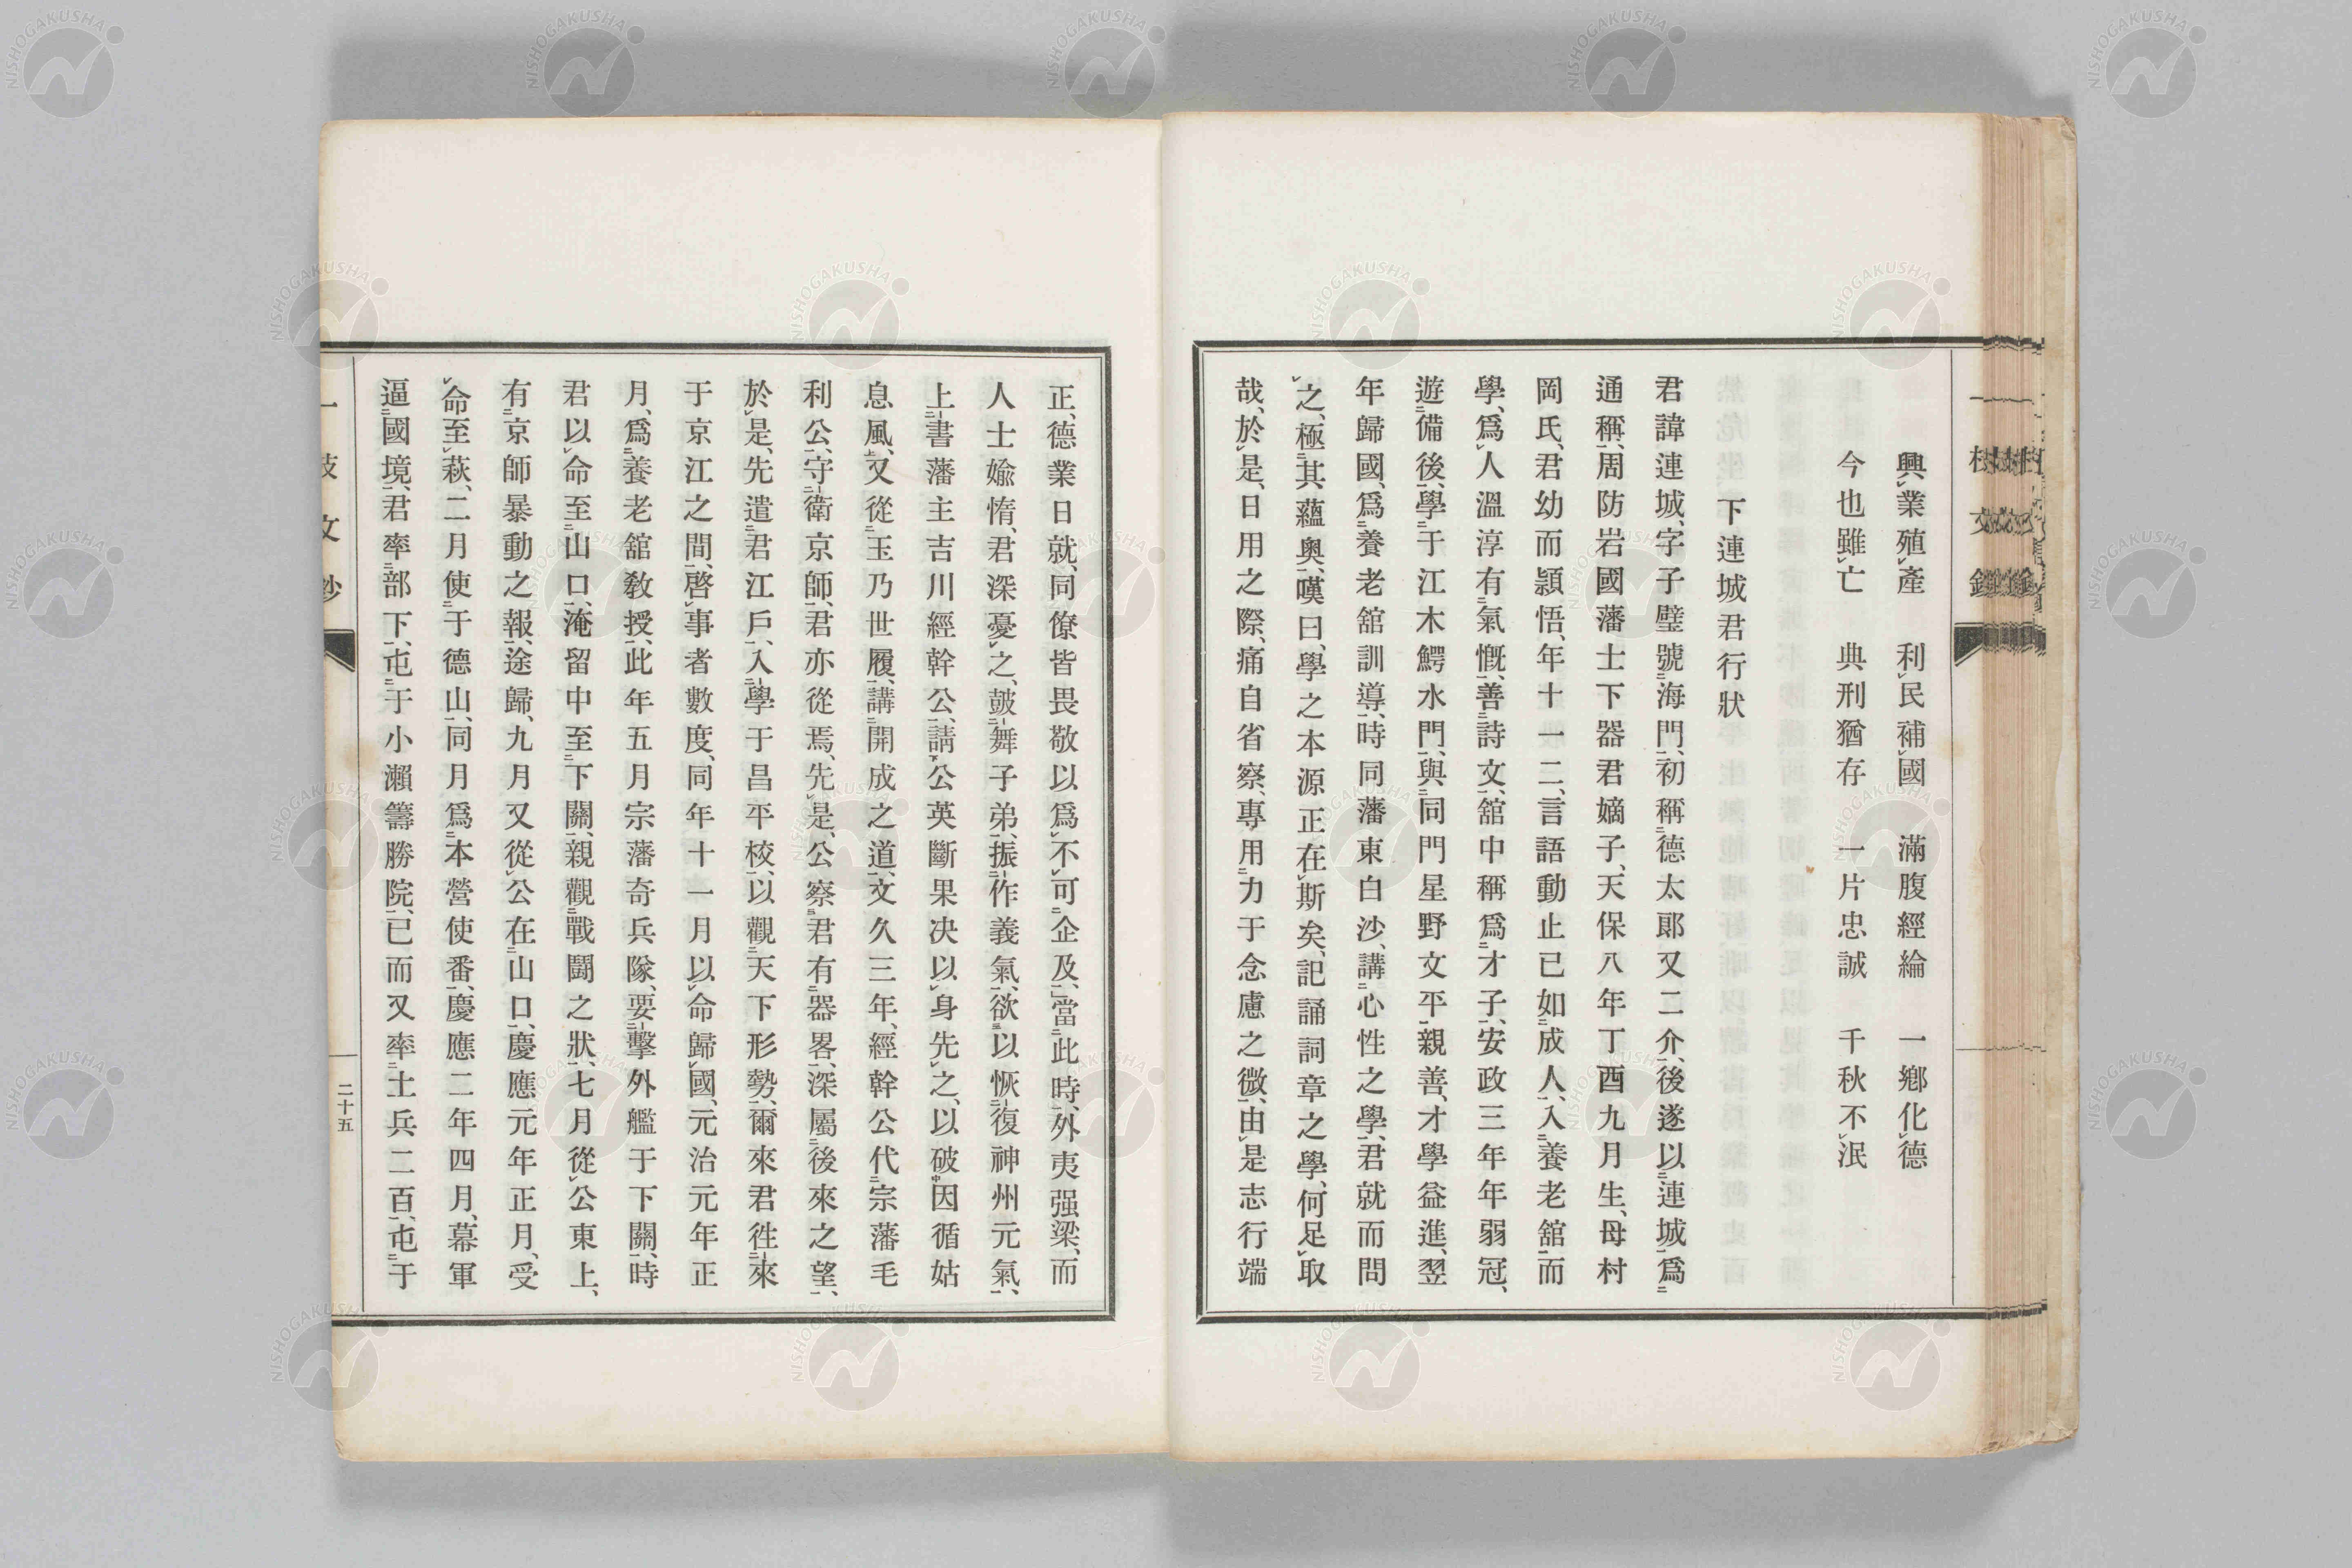 興業殖產　利民補國　滿腹經綸　一鄉化德
今也雖亡　典刑猶存　一片忠誠　千秋不泯
下連城君行狀
君諱連城、字子璧號海門、初稱德太郞又二介、後遂以連城爲
通稱、周防岩國藩士下器君嫡子、天保八年丁酉九月生、母村
岡氏、君幼而潁悟、年十一二、言語動止已如成人、入養老舘而
學、爲人溫淳有氣慨、善詩文、舘中稱爲才子、安政三年年弱冠、
遊備後、學于江木鰐水門、與同門星野文平親善、才學益進、翌
年歸國、爲養老舘訓導、時同藩東白沙、講心性之學、君就而問
之、極其蘊奧、嘆曰、學之本源正在斯矣、記誦詞章之學、何足取
哉、於是、日用之際、痛自省察、專用力于念慮之微、由是志行端
正、德業日就、同僚皆畏敬以爲不可企及、當此時、外夷强梁、而
人士媮惰、君深憂之、鼓舞子弟、振作義氣、欲以恢復神州元氣、
上書藩主吉川經幹公、請公英斷果决以身先之、以破因循姑
息風、又從玉乃世履、講開成之道、文久三年、經幹公代宗藩毛
利公、守衛京師、君亦從焉、先是、公察君有器畧、深屬後來之望、
於是、先遣君江戶、入學于昌平校、以觀天下形勢、爾來君徃來
于京江之間、啓事者數度、同年十一月以命歸國、元治元年正
月、爲養老舘敎授、此年五月宗藩奇兵隊、要擊外艦于下關、時
君以命至山口、淹留中至下關、親觀戰鬪之狀、七月從公東上、
有京師暴動之報、途歸、九月又從公在山口、慶應元年正月、受
命至萩、二月使于德山、同月爲本營使番、慶應二年四月、幕軍
逼國境、君率部下、屯于小瀨籌勝院、已而又率土兵二百、屯于
二十五
NISHOGAKUSHA